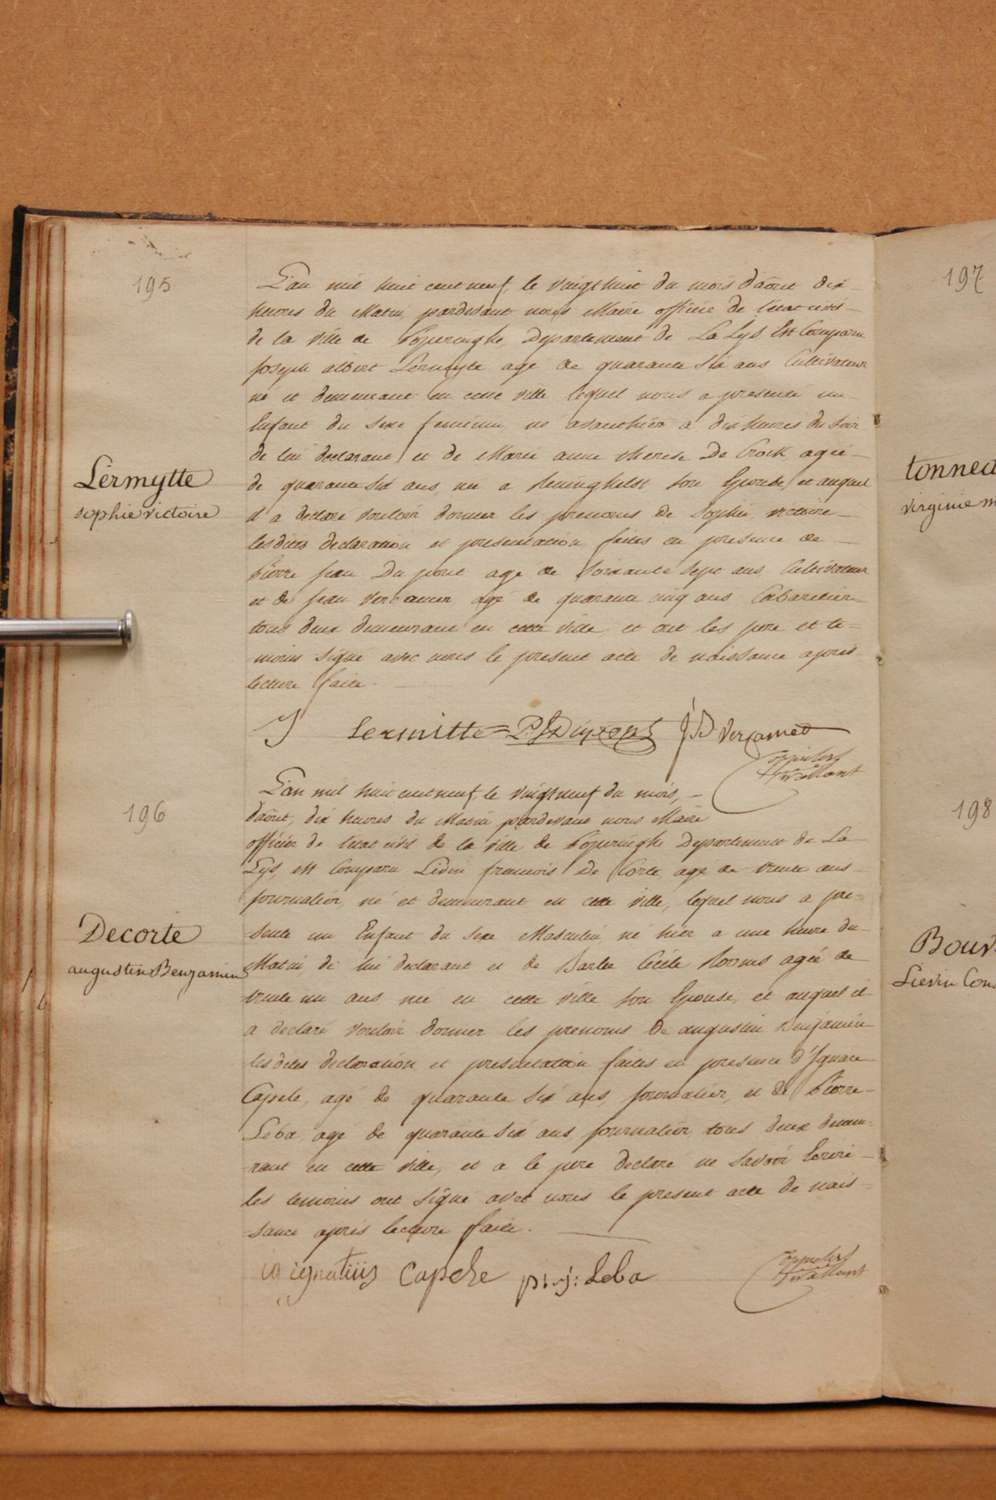 195
L'an mil huit cent neuf, le vingthuit du mois d'août dix
heures du Matin, pardevant nous Maire officier de l'etat civil
de la ville de Poperinghe, Departement de La Lys Est Comparu
Joseph albert Lermytte agé de quarante six ans Cultivateur
né et demeurant en cette ville lequel nous a presenté un
Enfant du sexe feminin, né avanthier a dix heures du soir
de lui declarant, et de Marie anne therese De Crock agée
de quarante six ans, née a Reninghelst son Epouse, et auquel
il a declaré vouloir donner les prenoms de Sophie victoire
Lermytte
sophie victoire
lesdites declaration et presentation faites en presence de
Pierre jean Du pont agé de soixante sept ans Cultivateur
et de jean Vercamer agé de quarante cinq ans Cabaretier
tous deux demeurant en cette ville, et ont les pere et te-
moins signé avec nous le present acte de naissance après
lecture faite.
J Lermitte P J Dupont J B Vercamer
196
L'an mil huit cent neuf, le vingtneuf du mois,
d'août, dix heures du Matin pardevant nous Maire
officier de l'etat civil de la ville de Poperinghe Departement de La
Lys, est Comparu Lidvin francois De Corte, agé de trente ans
journalier, né et demeurant en cette ville, lequel nous a pre-
senté un Enfant du sexe Masculin né hier a une heure du
Decorte
augustin Benjamin
Matin de lui declarant et de Barbe Cécile agée de
trente un ans, née en cette ville son Epouse, et auquel il
a declaré vouloir donner les prenoms de augustin Benjamin
lesdites declaration et presentation faites en presence d'Ignace
Capele, agé de quarante six ans, journalier, et de Pierre
Leba, agé de quarante six ans, journalier, tous deux demeu-
rant en cette ville, et a le pere declaré ne savoir Ecrire
les temoins ont signé avec nous le present acte de nais-
sance après lecture faite.
ignatius Capelle p: j: Leba
197
tonnea
virginie m
198
Bouv
Lievin Con